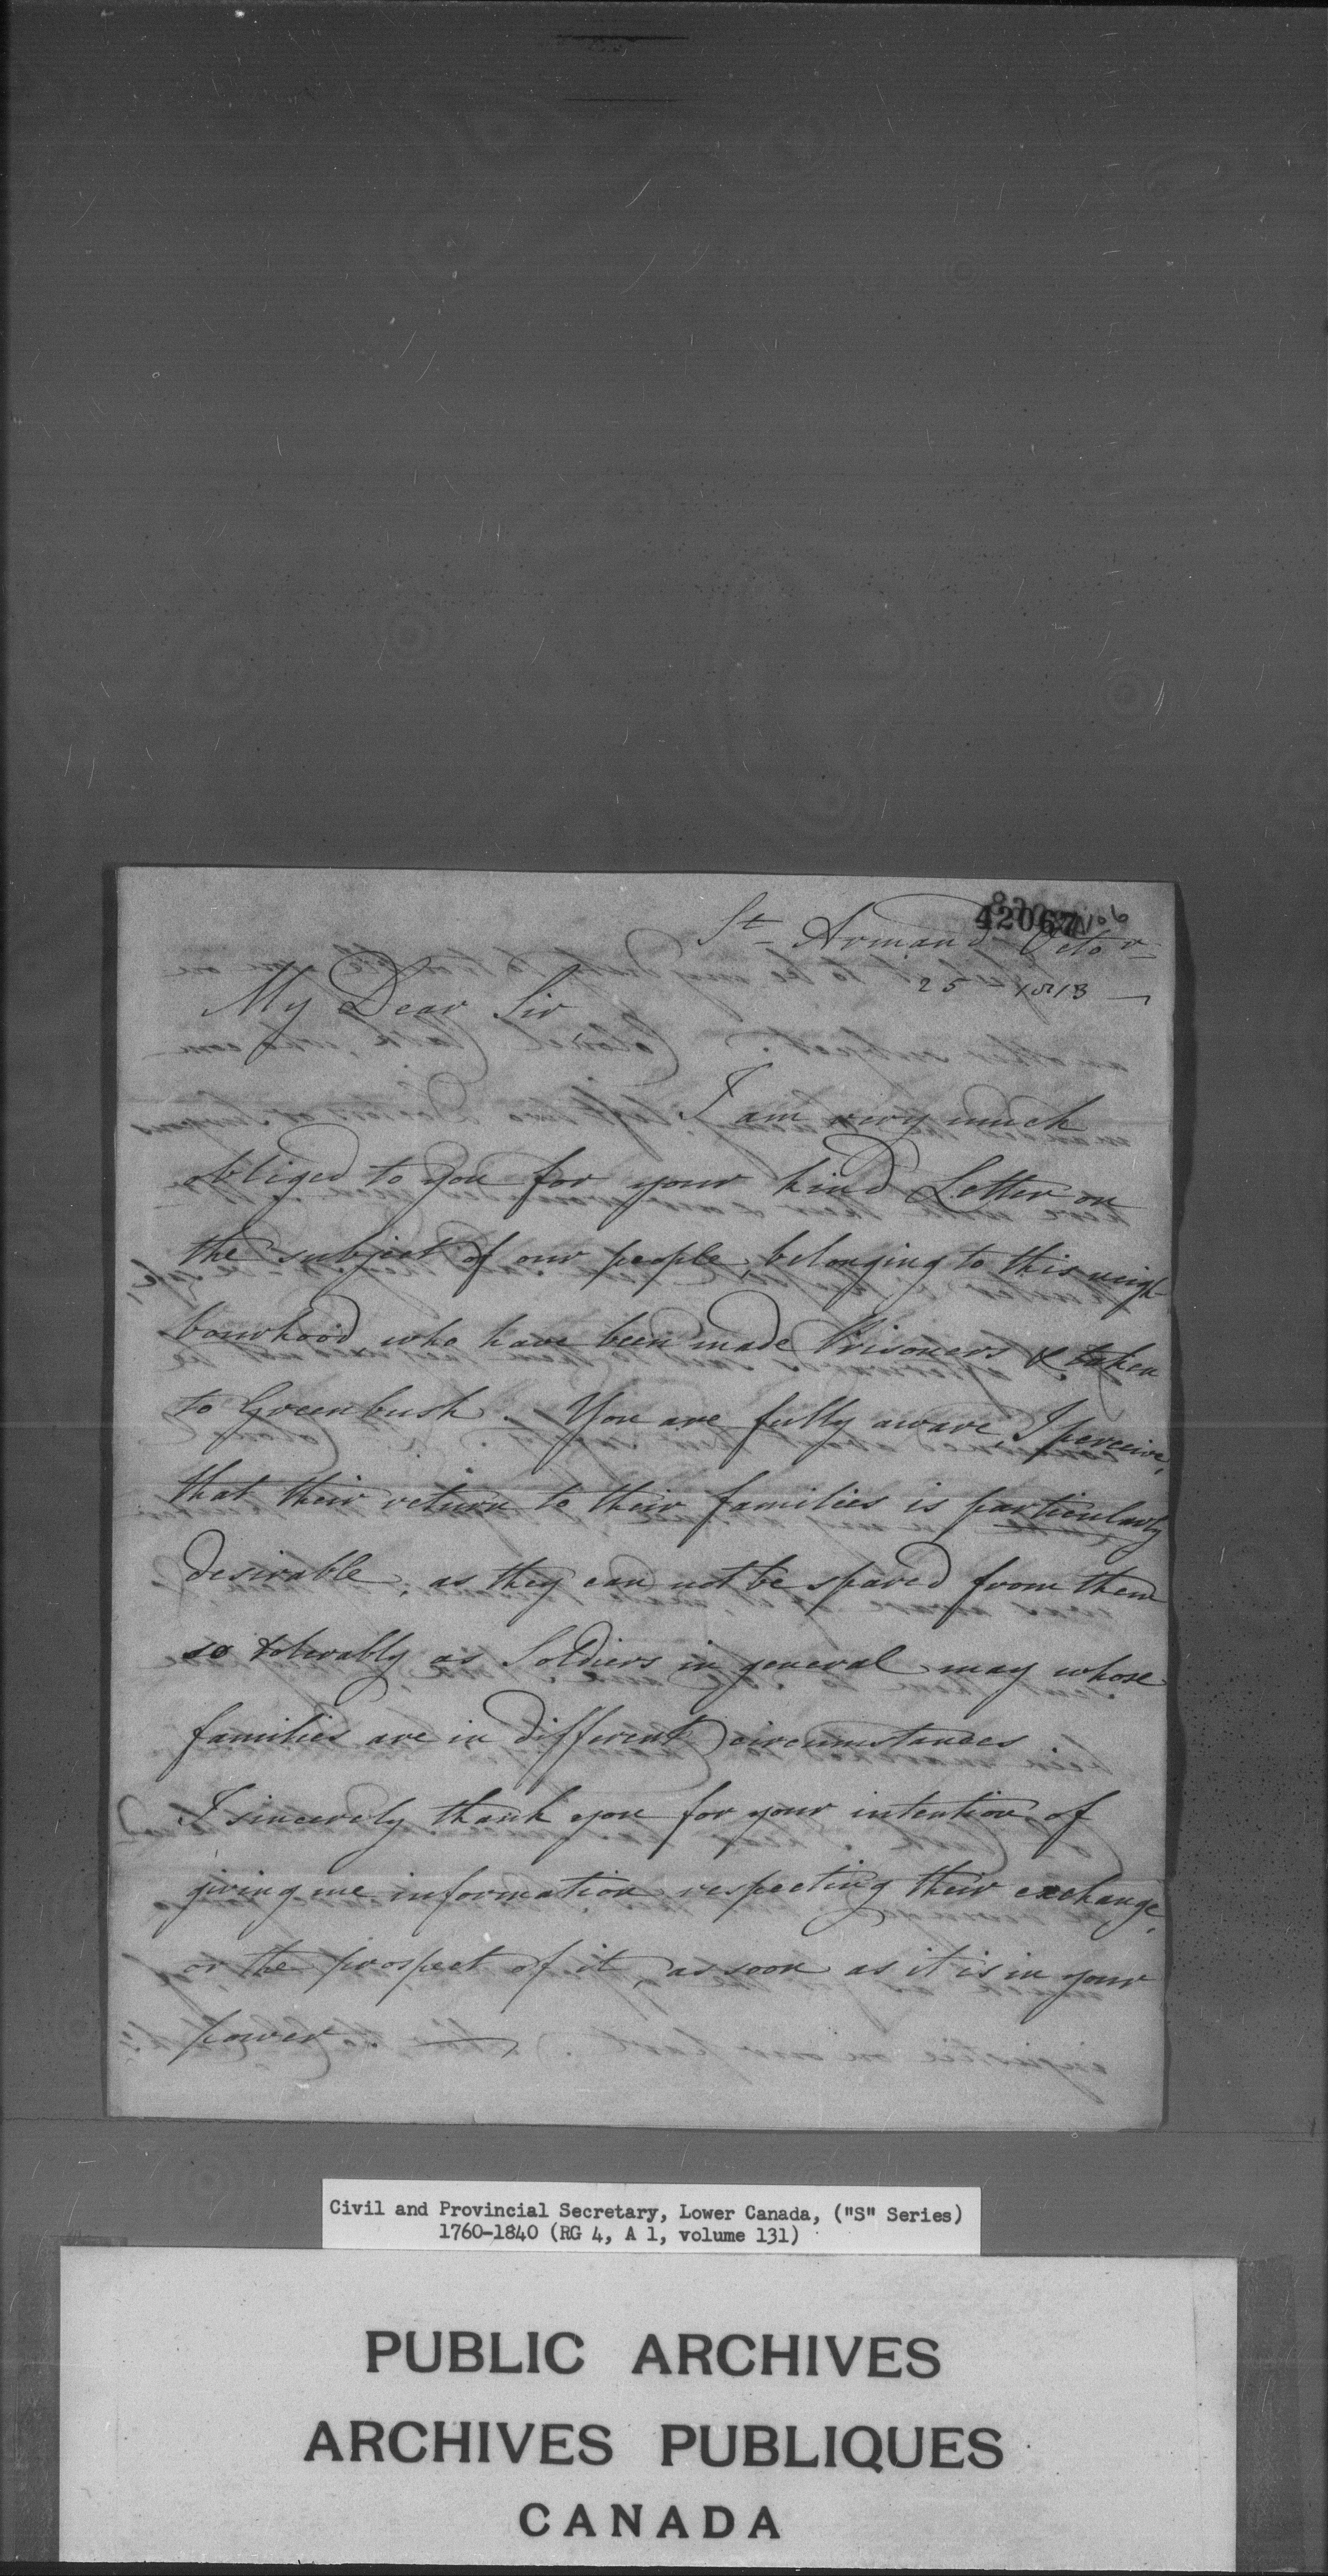 42067
St Armand Octor
25 - 1813
My Dear Sir
I am very much
obliged to you for your kind Letter on
the subject of our people, belonging to this neigh-
bourhood, who have been made Prisoners & taken
to Greenbush. You are fully aware, I perceive,
that their return to their families is particularly
desirable, as they can not be spared from them
so tolerably as Soldiers in general may whose
families are in different circumstances
I sincerely thank you for your intention of
giving me information respecting their exchange,
or the prospect of it, as soon as it is in your
power —
Civil and Provincial Secretary, Lower Canada, ("S" Series)
1760-1840 (RG 4, A 1, volume 131)
PUBLIC ARCHIVES
ARCHIVES PUBLIQUES
CANADA